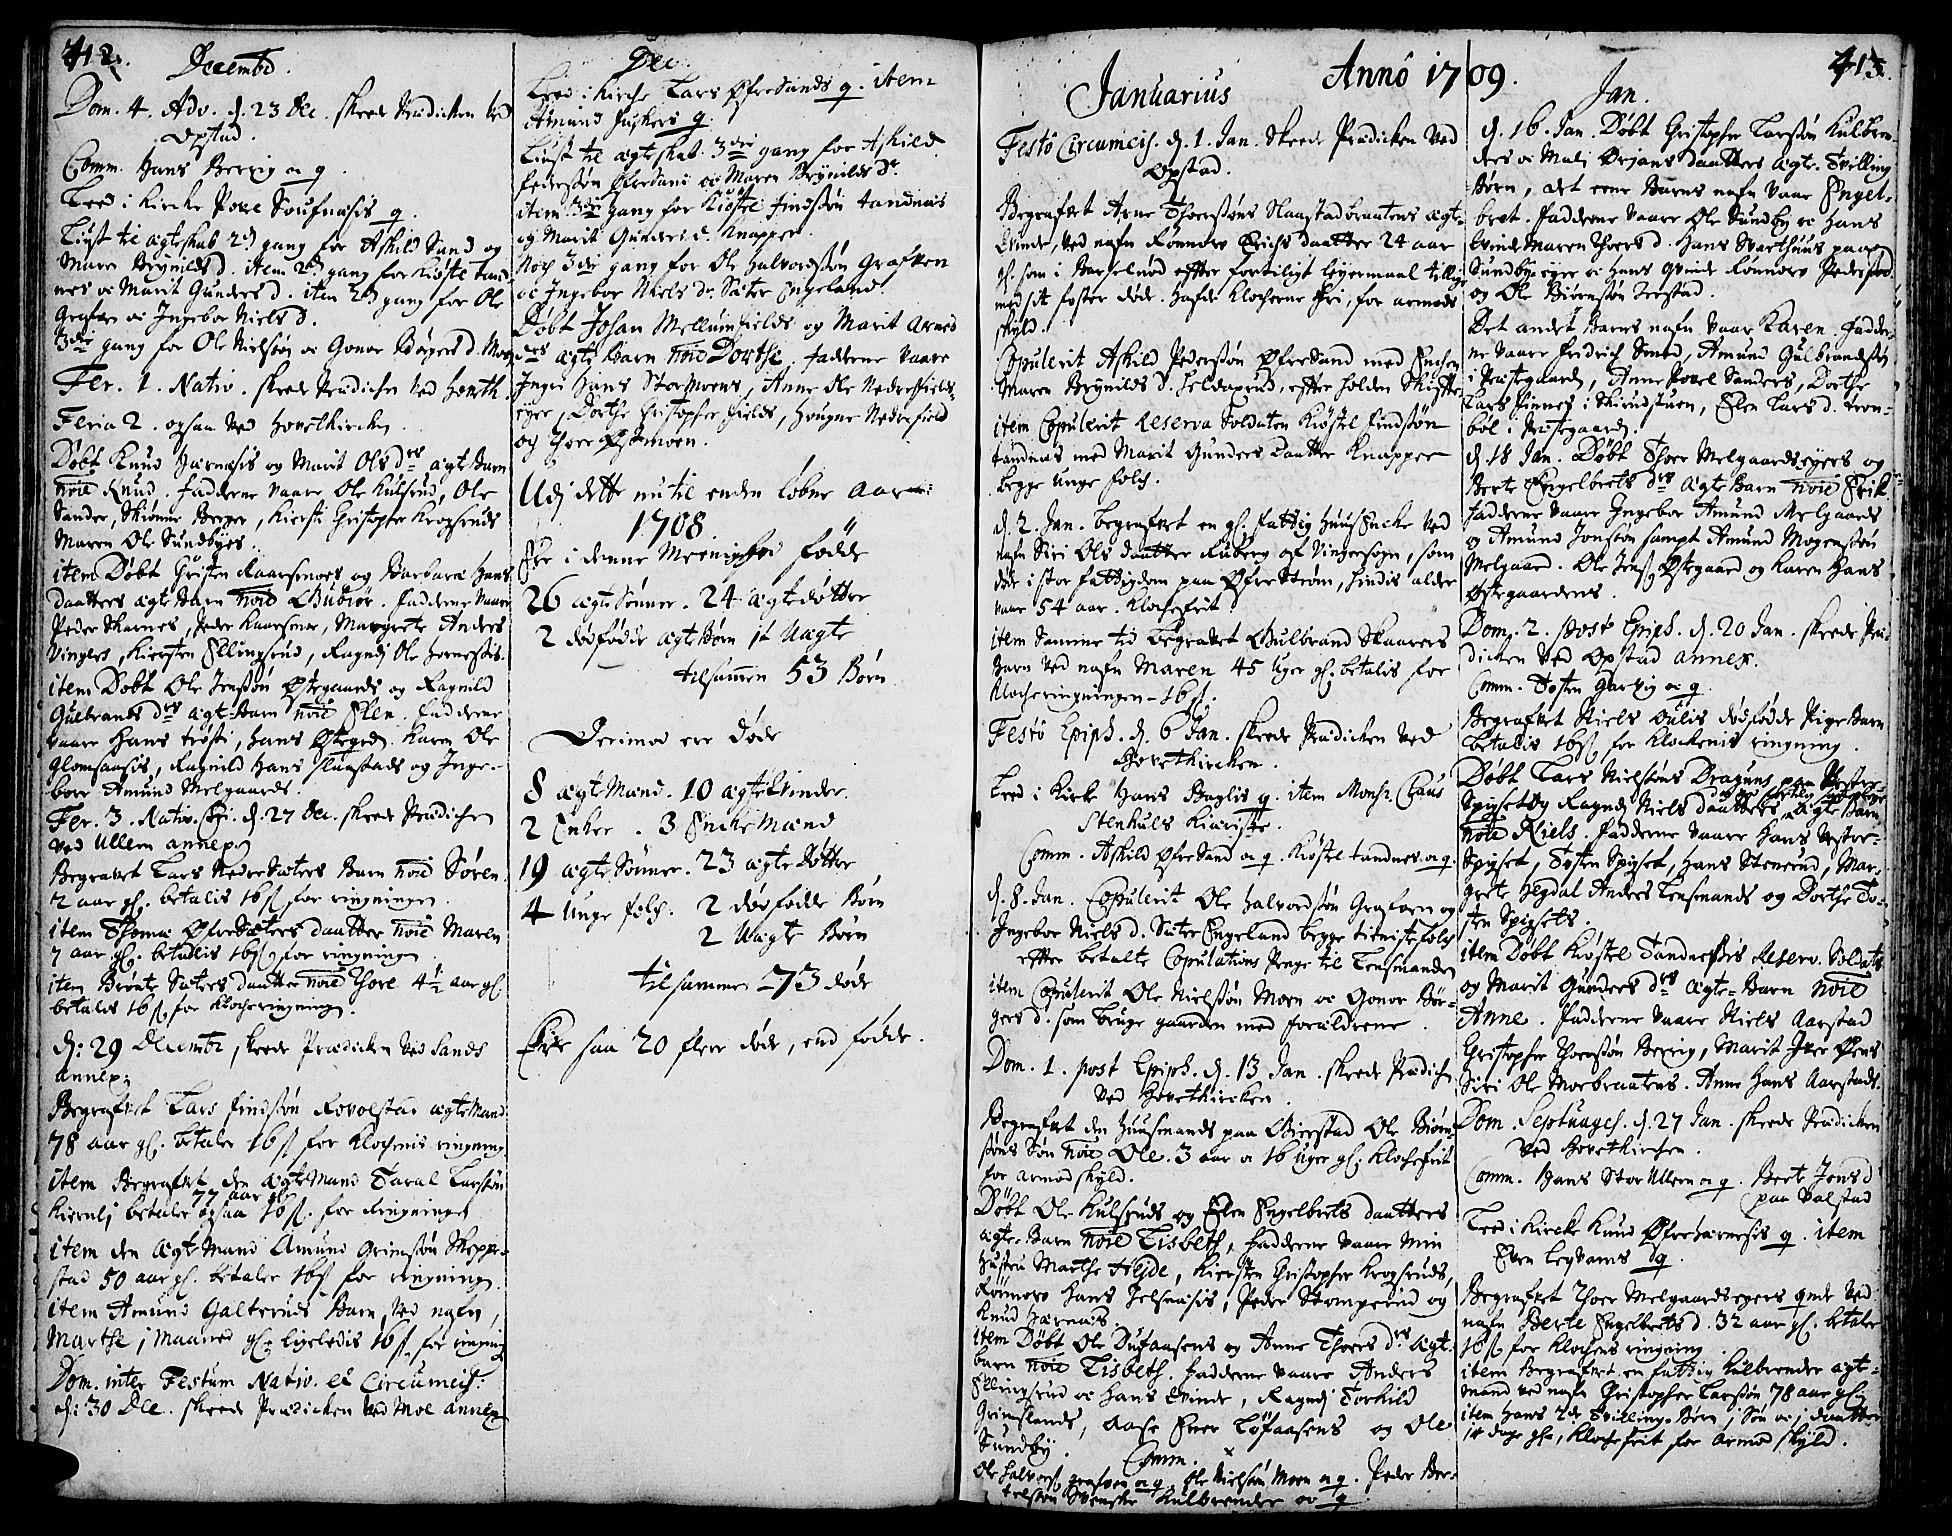 412.
Decembr.
Dom. 4. Adv. d. 23 Dec. skeede Prædicken ved
Opstad.
Comm. Hans Berrig oc q.
Leed i Kircke Povel Soufnæsis q.
Liust til ægteskab 2d gang for Askild Sand og
Maren Brynilds d. item 2d gang for Kiøstel Tand-
nes oc Marit Gunders d. item 2d gang for Ole
Grafven oc Ingebor Niels d.
3die gang for Ole Nielsøn oc Gonor Børgers d. Moen
Fer. 1. Nativ. skeede Prædicken ved Hovetk.
Feria 2. ogsaa ved Hovetkircken.
Døbt Knud Hærnæsis og Marit Ols drs ægte Barn
noie Knud. Fadderne vaare Ole Kulsrud, Ole
Sander, Skiønne Berger, Kiersti Christopher Krogsruds
Maren Ole Sundbyes.
item Døbt Christen Kaarsmoes og Barbara Hans
daatters ægte Barn noie Gubiør. Fadderne vaare
Peder Skarnes, Peder Kaarsmoe, Margrete Anders
Vingers, Kiersten Ellingsrud, Ragnil Ole Hornessis.
item Døbt Ole Jensøn Østgaards og Ragnild
Gulbrands drs ægte Barn noie Elen. Fadderne
vaare Hans Trøsti, Hans Østgrd. Karen Ole
Glomsaasis, Ragnild Hans Slaastads og Inge-
bore Amund Melgaards.
Fer. 3. Nativ. Chri. d. 27 Dec. skeede Prædicken
ved Ullern annex.
Begravet Lars NedreSæters Barn noie Søren
2 aar gl. betalis 16 ß for ringningen.
item Thomæ ØfreSæters daatter noie Maren
7 aar gl. betalis 16 ß for ringningen
item Brønte Sæters daatter noie Thore 4½ aar gl.
betalis 16 ß for Klockeringningen.
d: 29 Decembr, skeede Prædicken ved Sands
annex.
Begrafvet Lars Findsøn Rovolstad ægte Mand
78 aar gl. betaler 16 ß for Klockenis ringning.
item Begrafvet den ægte Mand Taral Larsøn
77 aar gl.
Kiernli betaler ogsaa 16 ß for Ringninged
item den ægte Mand Amund Grimsøn Skoppe-
stad 50 aar gl. betaler 16 ß for ringning.
item Amund Galteruds Barn, ved nafn,
Marthe j Maaned gl. ligeledis 16 ß for ringning
Dom. inter Festum Nativ. et Circumcis:
d: 30 Dec. skeede Prædicken ved Moe annex
Dec.
Leed i Kircke Lars ØfreSands q. item
Amund Juskers q.
Liust til ægteskab 3die gang for Askild
Pedersøn ØfreSand oc Maren Brynilds dr.
item 3die gang for Kiøstel Findsøn Tandnæs
og Marit Gunders d. Knapper.
Noch 3die gang for Ole Halvordsøn Grafven
oc Ingebor Niels dr. Sæter Engeland
Døbt Johan Mellumfields og Marit Arned
drs ægte Barn noie Dorthe. Fadderne vaare
Ingri Hans StorMoens, Anne Ole Nedrefields-
eyer, Dorthe Christopher Fields, Haagne Nedrefield
og Thore Østmoen.
Udj dette nu til enden løbne Aar
1708.
Ere i denne Meenighed fødde
26 ægte Sønner. 24 ægte døttre
2 dødfødde ægte Børn 1 Uægte
tilsammen 53 Børn
Derimod ere døde
8 ægte Mænd. 10 ægte Qvinder.
2 Encker. 3 Encke Mænd
19 ægte Sønner. 23 ægte Døttre
4 Unge folch. 2 dødfødde Børn
2 Uægte Børn
tilsammen 73 døde
Ere saa 20 flere døde, end fødde.
Anno 1709.
413.
Januarius
Festo Circumcis. d. 1. Jan. skeede Prædicken ved
Opstad.
Begrafvet Arne Thoersøns Slaastadbraatens ægte-
Qvinde, ved nafn Rønnov Erichs daatter 24 aar
gl. som i Barselnød effter fortiligt leyermaal tillige
med sit foster døde. Hafde Klockerne fri, for armods
skyld.
Copulerit Askild Pedersøn ØfreSand med Encken
Maren Brynilds d. Heldaprud, effter holden Skiffte
item Copulerit Reserva Soldaten Kiøstel Findsøn
Tandnæs med Marit Gunders daatter Knapper
begge unge folch.
d. 2. Jan. begrafvet en gl. fattig Huus Encke ved
nafn Siri Ols daatter Ruberg af Vingersogn, som
døde i stor fattigdom paa ØfreStrøm, hindis alder
vaar 54 aar. Klockefrit
item Samme tid begravet Gulbrand Skaarers
Barn ved nafn Maren 45 Uger gl. betalis for
Klockeringningen - 16 ß.
Festo Epiph. d. 6 Jan. skeede Prædicken ved
Hovetkircken.
Leed i Kircke Hans Baglis q. item Monsr. Claus
Stenkuls Kieriste.
Comm. Askild ØfreSand oc q. Kiøstel Tandnes oc q.
d. 8. Jan. Copulerit Ole Halvordsøn Grafven og
Ingebor Niels d. Sæter Engeland begge tieniste folch
effter betalte Copulations Penge til Lensmanden
item Copulerit Ole Nielsøn Moen oc Gonor Bør-
gers d. som bruge gaarden med forældrene.
Dom. 1. post Epiph. d. 13 Jan. skeede Prædicken
ved Hovetkircken.
Begrafvet den Huusmands paa Gierstad Ole Biørn-
søns Søn noie Ole. 3 aar oc 16 Uger gl: Klockefrit
for armod skyld.
Døbt Ole Kulsruds og Elen Engelbrets daatters
ægte Barn noie Lisbeth, Fadderne vaare min
hustru Marthe Heyde, Kiersten Christopher Krogsruds,
Rønnov Hans Jelsnæsis, Peder Stomperud og
Knud Hærnæs.
item Døbt Ole Dufaasens og Anne Thoers drs. ægte
barn noie Lisbeth. Fadderne vaare Anders
Ellingsrud oc Hans Qvinde, Ragnil Torkild
Grimslands, Aase Iver Løfaasens og Ole
Sundby.
Comm.
Ole Halvors. Grafven oc q. Ole Nielsøn Moen oc q. Peder Ber-
telsøn Svenske Kulbrender oc q.
Jan.
d. 16. Jan. Døbt Christopher Larssøn Kulbren-
ders oc Mali Ørjans daatters ægte Tvilling
Børn, det eene Barns nafn vaar Engel-
bret. Fadderne vaare Ole Sundby oc Hans
Qvinde Maren Thoers d. Hans Svarthuus paa
Sundbyeyer oc hans Qvinde Rønnov Peders d.
og Ole Biørnsøn Jerstad
Det andet Barns nafn vaar Karen. Fadder-
ne vaare Fredrich Smed, Amund Gulbrandsøn
i Præstegaard, Anne Povel Sanders, Dorthe
Lars Finnes i Skirudstuen, Elen Lars d. Tron-
bøl i Præstegaard.
d. 18 Jan. Døbt Thoer Melgaardseyers og
Berte Engelbrets drs ægte Barn noie Erik
Fadderne vaare Ingebor Amund Melgaards
og Amund Jonsøn sampt Amund Mogensøn
Melgaard. Ole Jens. Østgaard og Karen Hans
Østgaardens.
Dom. 2. post Epiph. d. 20 Jan. skeede Præ-
dicken ved Opstad annex.
Comm. Tosten Harrig oc q.
Begrafvet Niels Oulis dødfødde Pige Barn
betalis 16 ß for Klockenis ringning.
Døbt Lars Nielsøns Draguns paa Vestre-
Spigset og Ragnil Niels daatters ægte Barn
noie Niels. Fadderne vaare Hans Vestre-
Spigset, Tosten Spigset, Hans Stenerud, Mar-
grete Hegdal Anders Lensmands og Dorthe To-
sten Spigsets.
item Døbt Kiøstel Tandnessis Reserv. Soldats
og Marit Gunders drs ægte-Barn noie
Anne. Fadderne vaare Niels Aarstad
Christopher Thoersøn Berrig, Marit Iver Øens
Siri Ole Morbraatens. Anne Hans Aarstads.
Dom. Septuages. d. 27 Jan. skeede Prædicken
ved Hovetkircken.
Comm. Hans Stor Ullern oc q. Beret Jens d
paa Valstad
Leed i Kircke Knud ØfreHærnesis q. item
Even Legvams q.
Begrafvet Thoer Melgaardseyers qinde ved
nafn Berte Engelbrets d. 32 aar gl. betaler
16 ß for Klockens ringning.
item Begrafvet en fattig Kulbrender ægte-
mand ved nafn Christopher Larssøn 78 aar gl.
item hans 2de Tvillinge Børn j Søn oc j daatter
14 dage gle, Klockefrit for armod skyld.